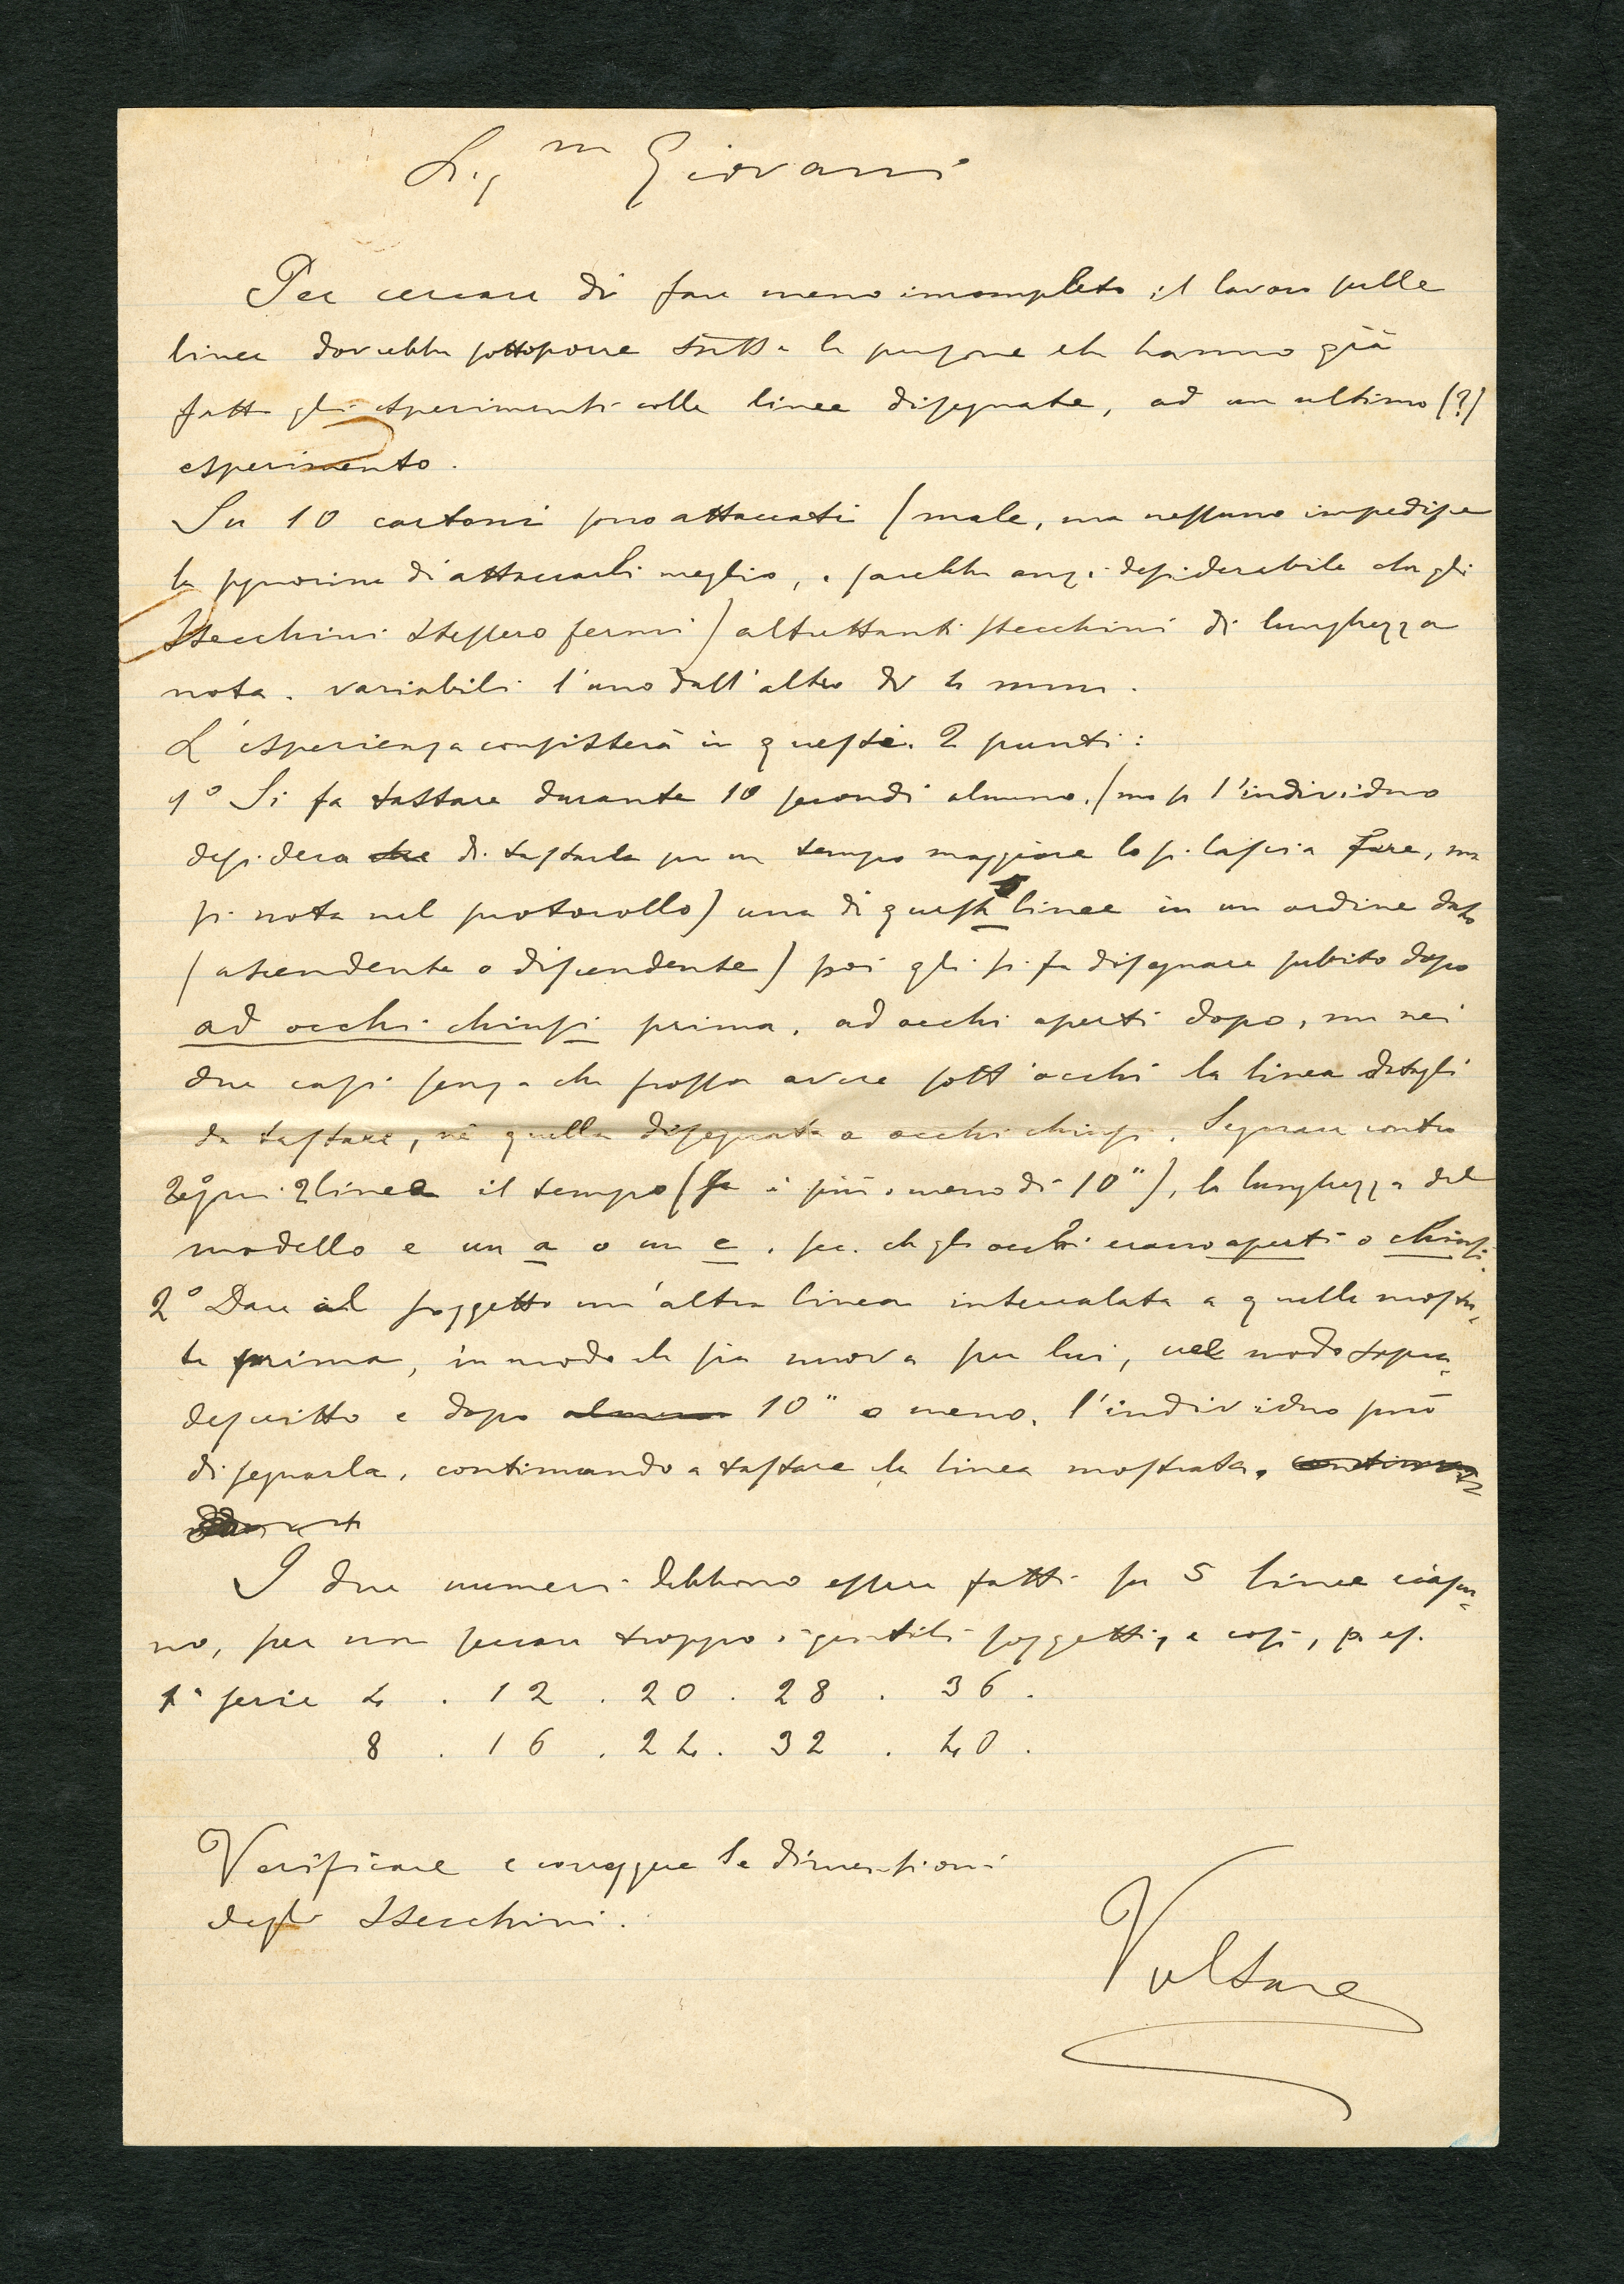 Sig.na Giovanni
Per cercare di fare meno incompleto il lavoro sulle
linee dovrebbe sottoporre tutte le persone che hanno già
fatto gli esperimenti colle linee disegnate, ad un ultimo (?)
esperimento.
Su 10 cartoni sono attaccati (male, ma nessuno impedisce
la signorina di attaccarli meglio, e sarebbe anzi desiderabile che gli
stecchini stessero fermi) altrettanti stecchini di lunghezza
nota. variabili l'uno dall'altro di 4 mm.
L'esperienza consisterà in questi 2 punti:
1° Si fa tastare durante 10 secondi almeno. (ma se l'individuo
desidera che di tastarla per un tempo maggiore lo si lascia fare, ma
si nota nel protocollo) una di queste linee in un ordine dato
(ascendente o discendente) poi gli si fa disegnare subito dopo
ad occhi chiusi prima, ad occhi aperti dopo, ma nei
due casi senza che possa avere sott'occhi la linea datagli
da tastare, nè quella disegnata a occhi chiusi. Segnare contro
ogni linea il tempo (se è più o meno di 10"), la lunghezza del
modello e un a o un c, sec. che gli occhi erano aperti o chiusi.
2° Dare al soggetto un'altra linea intercalata a quelle mostra-
te prima, in modo che sia nuova per lui, nel modo sopra-
descritto e dopo almeno 10" o meno, l'individuo può
disegnarla, continuando a tastare la linea mostrata.
I due numeri debbono essere fatti su 5 linee ciascu-
no, per non seccare troppo i gentili soggetti, e così, p. es.
1ª serie 4 . 12 . 20 . 28 . 36 .
8 . 16 . 24 . 32 . 40 .
Verificare e correggere le dimensioni
degli stecchini.